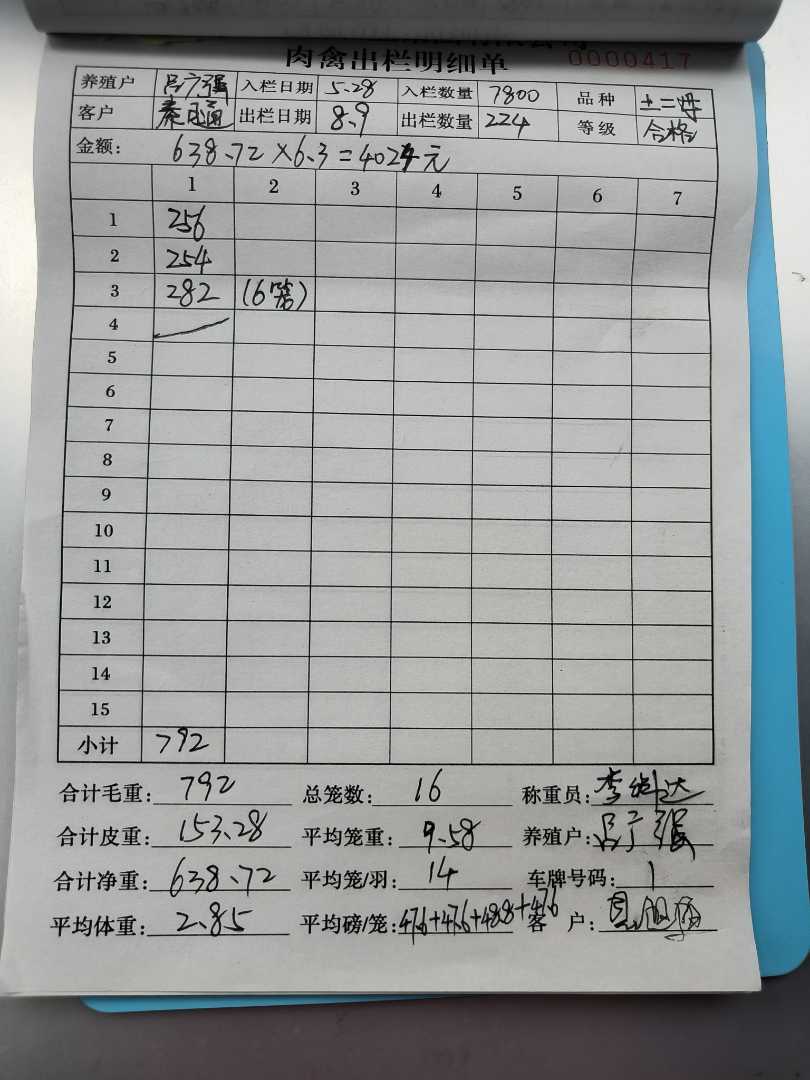 肉禽出栏明细单 0000417
养殖户 吕广强 入栏日期 5.28 入栏数量 7800 品种 土二号
客户 秦日通 出栏日期 8.9 出栏数量 224 等级 合格
金额: 638.72×6.3=4024元
1 2 3 4 5 6 7
1 256
2 254
3 282 (6笼)
4
5
6
7
8
9
10
11
12
13
14
15
小计 792
合计毛重: 792 总笼数: 16 称重员: 李
合计皮重: 153.28 平均笼重: 9.58 养殖户: 吕广强
合计净重: 638.72 平均笼/羽: 14 车牌号码: 1
平均体重: 2.85 平均磅/笼: 47.6+47.6+48.8+47.6 客户: